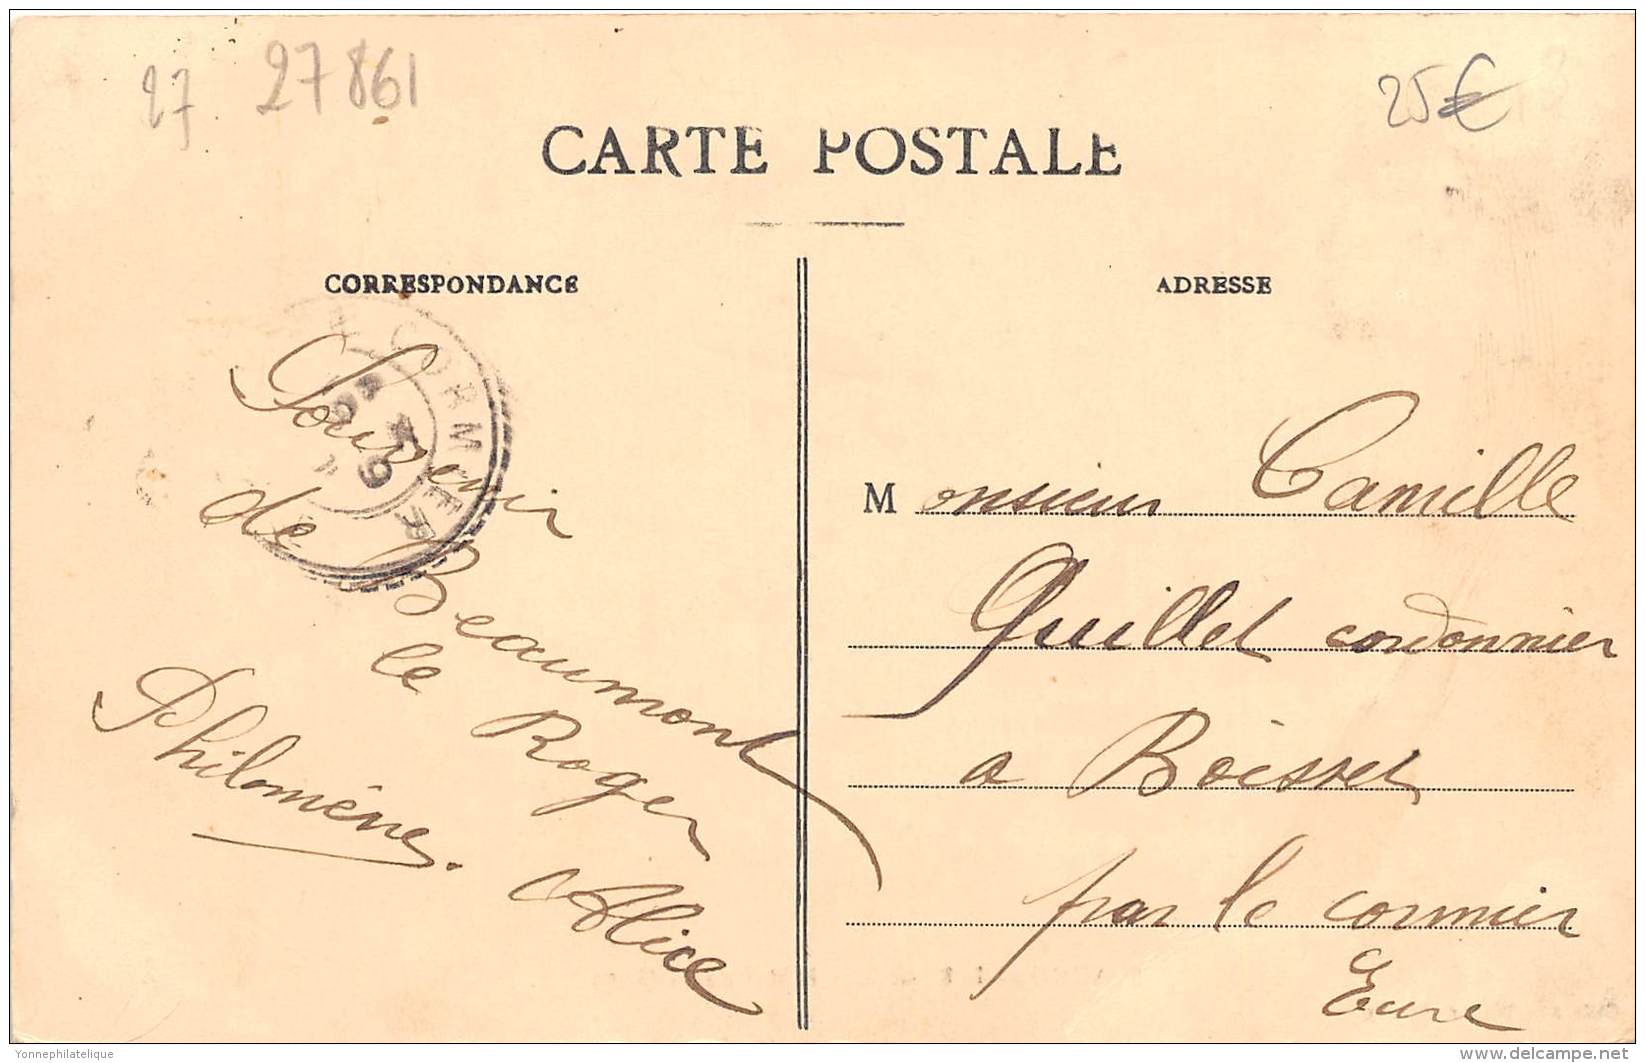 27 27861
25€
CARTE POSTALE
CORRESPONDANCE
ADRESSE
CORMIER
Souvenir
de Beaumont
le Roger
Philomène.
Alice
Monsieur Camille
Quillet cordonnier
a Boisset
par le cormier
Eure
Yonnephilatelique
delcampe.net